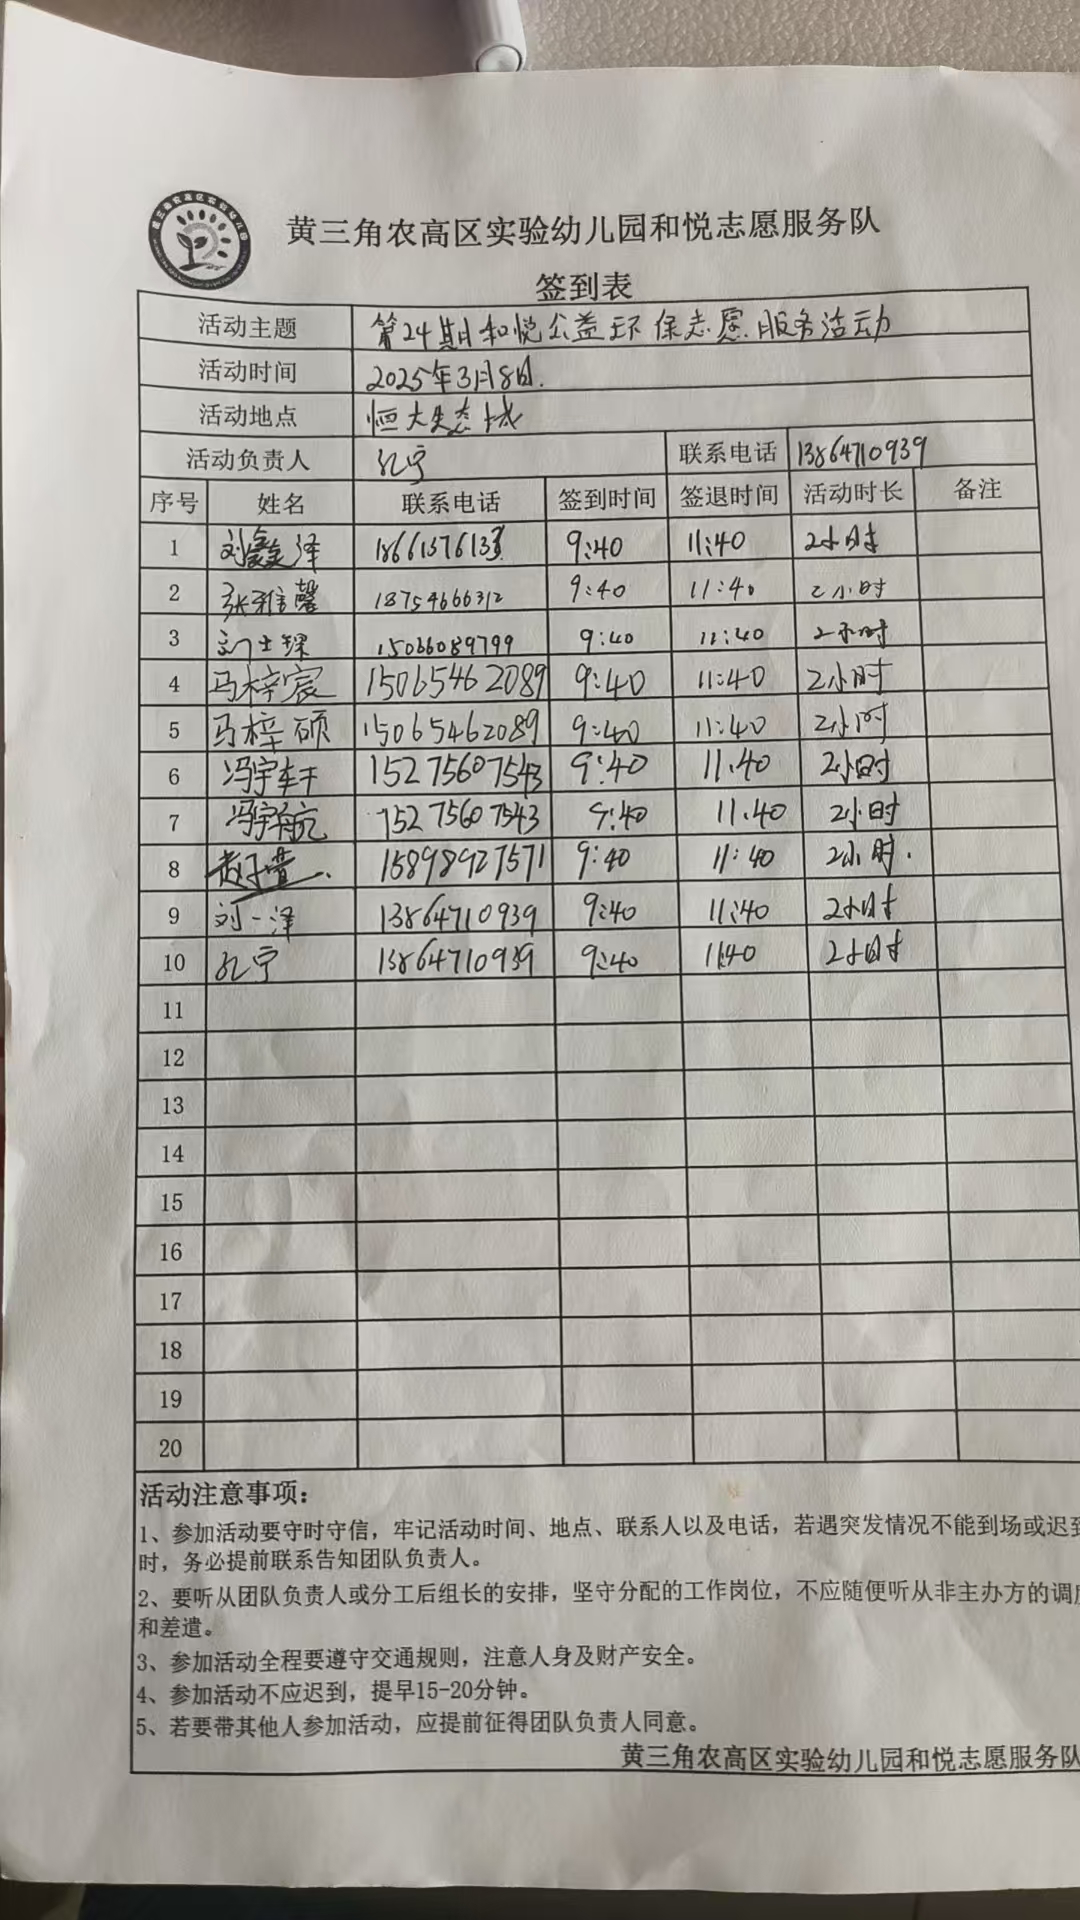 黄三角农高区实验幼儿园和悦志愿服务队
签到表
活动主题 第24期和悦公益环保志愿服务活动
活动时间 2025年3月8日.
活动地点 恒大生态城
活动负责人 孔宁 联系电话 13864710939
序号 姓名 联系电话 签到时间 签退时间 活动时长 备注
1 刘鑫泽 1866137613 9:40 11:40 2小时
2 张雅馨 18754666312 9:40 11:40 2小时
3 15066089799 9:40 11:40 2小时
4 马梓宸 15065462089 9:40 11:40 2小时
5 马梓硕 15065462089 9:40 11:40 2小时
6 冯宇轩 15275607543 9:40 11.40 2小时
7 冯宇航 15275607543 9:40 11.40 2小时
8 15898927571 9:40 11:40 2小时.
9 刘一泽 13864710939 9:40 11:40 2小时
10 孔宁 13864710939 9:40 11:40 2小时
11
12
13
14
15
16
17
18
19
20
活动注意事项：
1、参加活动要守时守信，牢记活动时间、地点、联系人以及电话，若遇突发情况不能到场或迟到
时，务必提前联系告知团队负责人。
2、要听从团队负责人或分工后组长的安排，坚守分配的工作岗位，不应随便听从非主办方的调度
和差遣。
3、参加活动全程要遵守交通规则，注意人身及财产安全。
4、参加活动不应迟到，提早15-20分钟。
5、若要带其他人参加活动，应提前征得团队负责人同意。
黄三角农高区实验幼儿园和悦志愿服务队